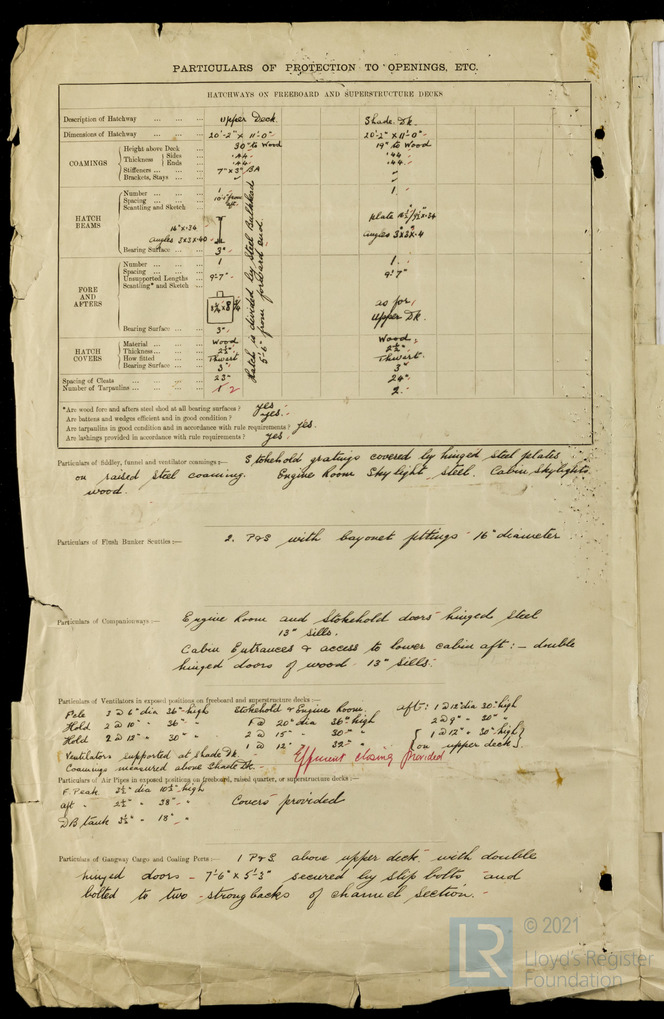 PARTICULARS OF PROTECTION TO OPENINGS, ETC.
HATCHWAYS ON FREEBOARD AND SUPERSTRUCTURE DECKS
Description of Hatchway ... ... ... Upper Deck. Shade Dk.
Dimensions of Hatchway ... ... 20'-2" x 11'-0" 20'-2" x 11'-0"
COAMINGS
Height above Deck ... 30" to Wood 19" to Wood
Thickness Sides ... .44 .44
Ends ... .44 .44
Stiffeners ... ... 7" x 3" BA
Brackets, Stays ... ...
HATCH BEAMS
Number ... ... ... 1 1
Spacing ... ... ... from aft.
Scantling and Sketch
Angles 3x3x.40 Angles 3"x3"x.4
Bearing Surface ... ... 3"
FORE AND AFTERS
Number ... ... ... 1 1
Spacing ... ... ...
Unsupported Lengths ... 9'-7" 9'-7"
Scantling* and Sketch ... as for Upper Dk.
Bearing Surface ... ... 3"
Hatch is divided by Steel Bulkhead
5'-6" from forward end.
HATCH COVERS
Material ... ... ... Wood Wood
Thickness ... ... ... 2½" 2½"
How fitted ... ... Thwart Thwart
Bearing Surface ... ... 3" 3"
Spacing of Cleats ... ... ... 23" 24"
Number of Tarpaulins ... ... ... 2 2
*Are wood fore and afters steel shod at all bearing surfaces? yes
Are battens and wedges efficient and in good condition? yes.
Are tarpaulins in good condition and in accordance with rule requirements? yes.
Are lashings provided in accordance with rule requirements? yes
Particulars of fiddley, funnel and ventilator coamings:— Stokehold gratings covered by hinged steel plates
on raised steel coaming. Engine Room Skylight steel. Cabin Skylights
wood.
Particulars of Flush Bunker Scuttles:— 2. P&S with bayonet fittings 16" diameter
Particulars of Companionways:— Engine Room and Stokehold doors hinged steel
13" sills.
Cabin Entrances & access to lower cabin aft:— double
hinged doors of wood 13" sills.
Particulars of Ventilators in exposed positions on freeboard and superstructure decks:—
3 @ 6" dia 36" high Stokehold & Engine Room. aft: 1 @ 12" dia 30" high
Hold 2 @ 10" " 36" " @ 20" dia 36" high 2 @ 9" " 30" "
Hold 2 @ 12" " 30" " 2 @ 15" 30" " { 1 @ 12" " 30" high }
1 @ 12" 32" " { on upper deck }
Ventilators supported at Shade Dk.
Efficient closing provided
Coamings measured above Shade Dk.
Particulars of Air Pipes in exposed positions on freeboard, raised quarter, or superstructure decks:—
F. Peak 2½" dia 10½" high
aft " 2½" " 38" " Covers provided
DB tank 2½" " 18" "
Particulars of Gangway Cargo and Coaling Ports:— 1 P&S above upper deck with double
hinged doors – 7'-6" x 5'-3" secured by slip bolts and
bolted to two strongbacks of channel section.
© 2021
LR
Lloyd's Register
Foundation